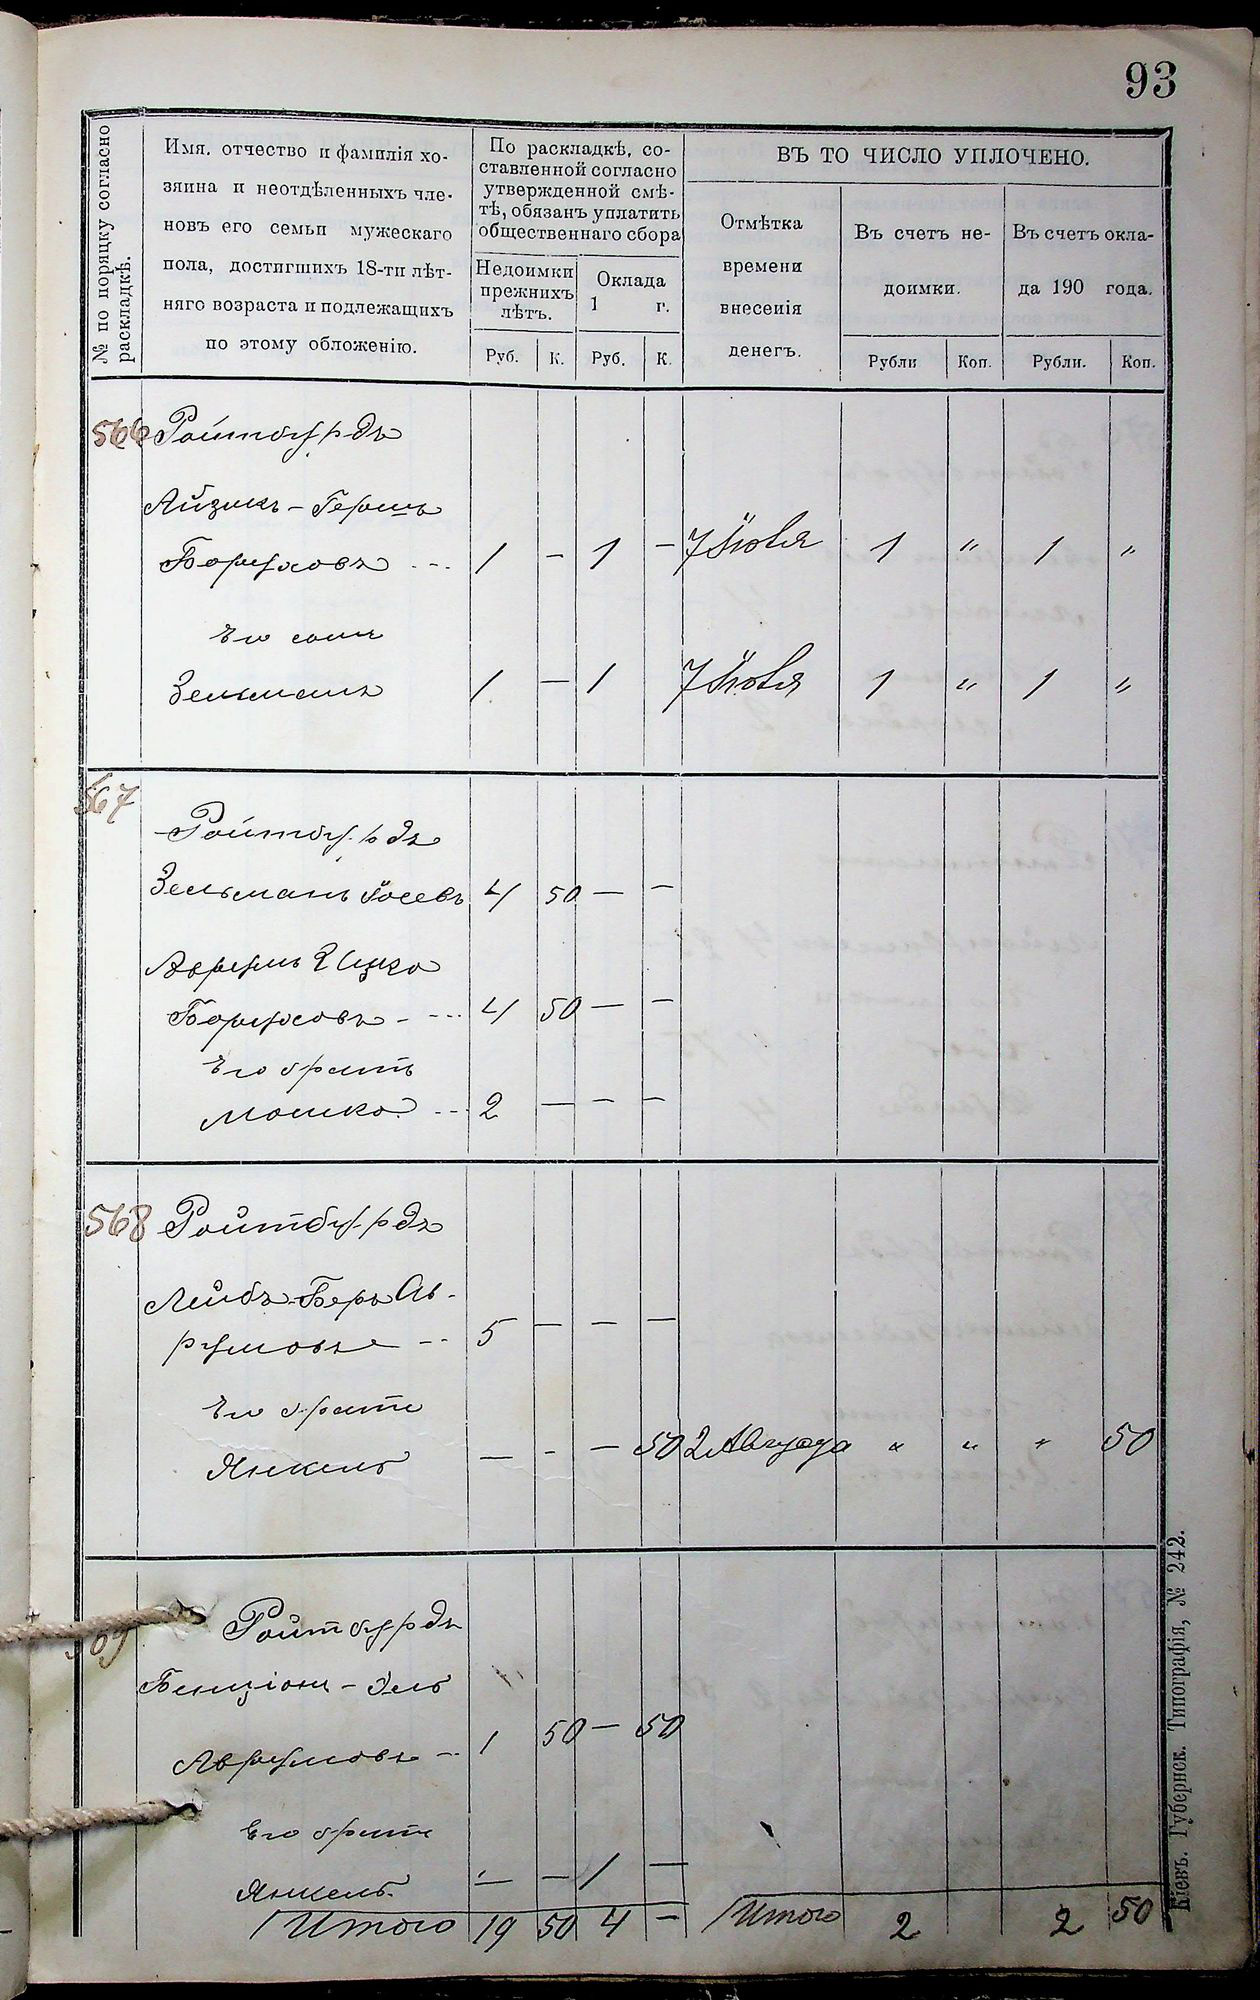 93
№ по порядку согласно раскладкѣ.
Имя, отчество и фамилія хо-
зяина и неотдѣленныхъ чле-
новъ его семьи мужескаго
пола, достигшихъ 18-ти лѣт-
няго возраста и подлежащихъ
по этому обложенію.
По раскладкѣ, со-
ставленной согласно
утвержденной смѣ-
тѣ, обязанъ уплатить
общественнаго сбора
Недоимки
прежнихъ
лѣтъ.
Оклада
1 г.
Руб. К. Руб. К.
ВЪ ТО ЧИСЛО УПЛОЧЕНО.
Отмѣтка
времени
внесенія
денегъ.
Въ счетъ не-
доимки.
Въ счетъ окла-
да 190 года.
Рубли Коп. Рубли. Коп.
566 Ройтбурдъ
Айзикъ-Гершъ
Боруховъ --- 1 — 1 — 7 Іюля 1 " 1 "
Его сынъ
Зельманъ 1 — 1 7 Іюля 1 " 1 "
567
Ройтбурдъ
Зельманъ Іосевъ 4 50 — —
Аврумъ Ицко
Боруховъ - --- 4 50 — —
Его братъ
Мошко --- 2 — — —
568 Ройтбурдъ
Лейбъ-Беръ Ав-
румовъ -- 5 — — —
Его братъ
Янкель — - — 50 2 Августа " " " 50
569
Ройтбурдъ
Бенціонъ-Зель
Аврумовъ -- 1 50 — 50
Его братъ
Янкель — — 1 —
Итого 19 50 4 — Итого 2 2 50
Кіевъ. Губернск. Типографія, № 242.